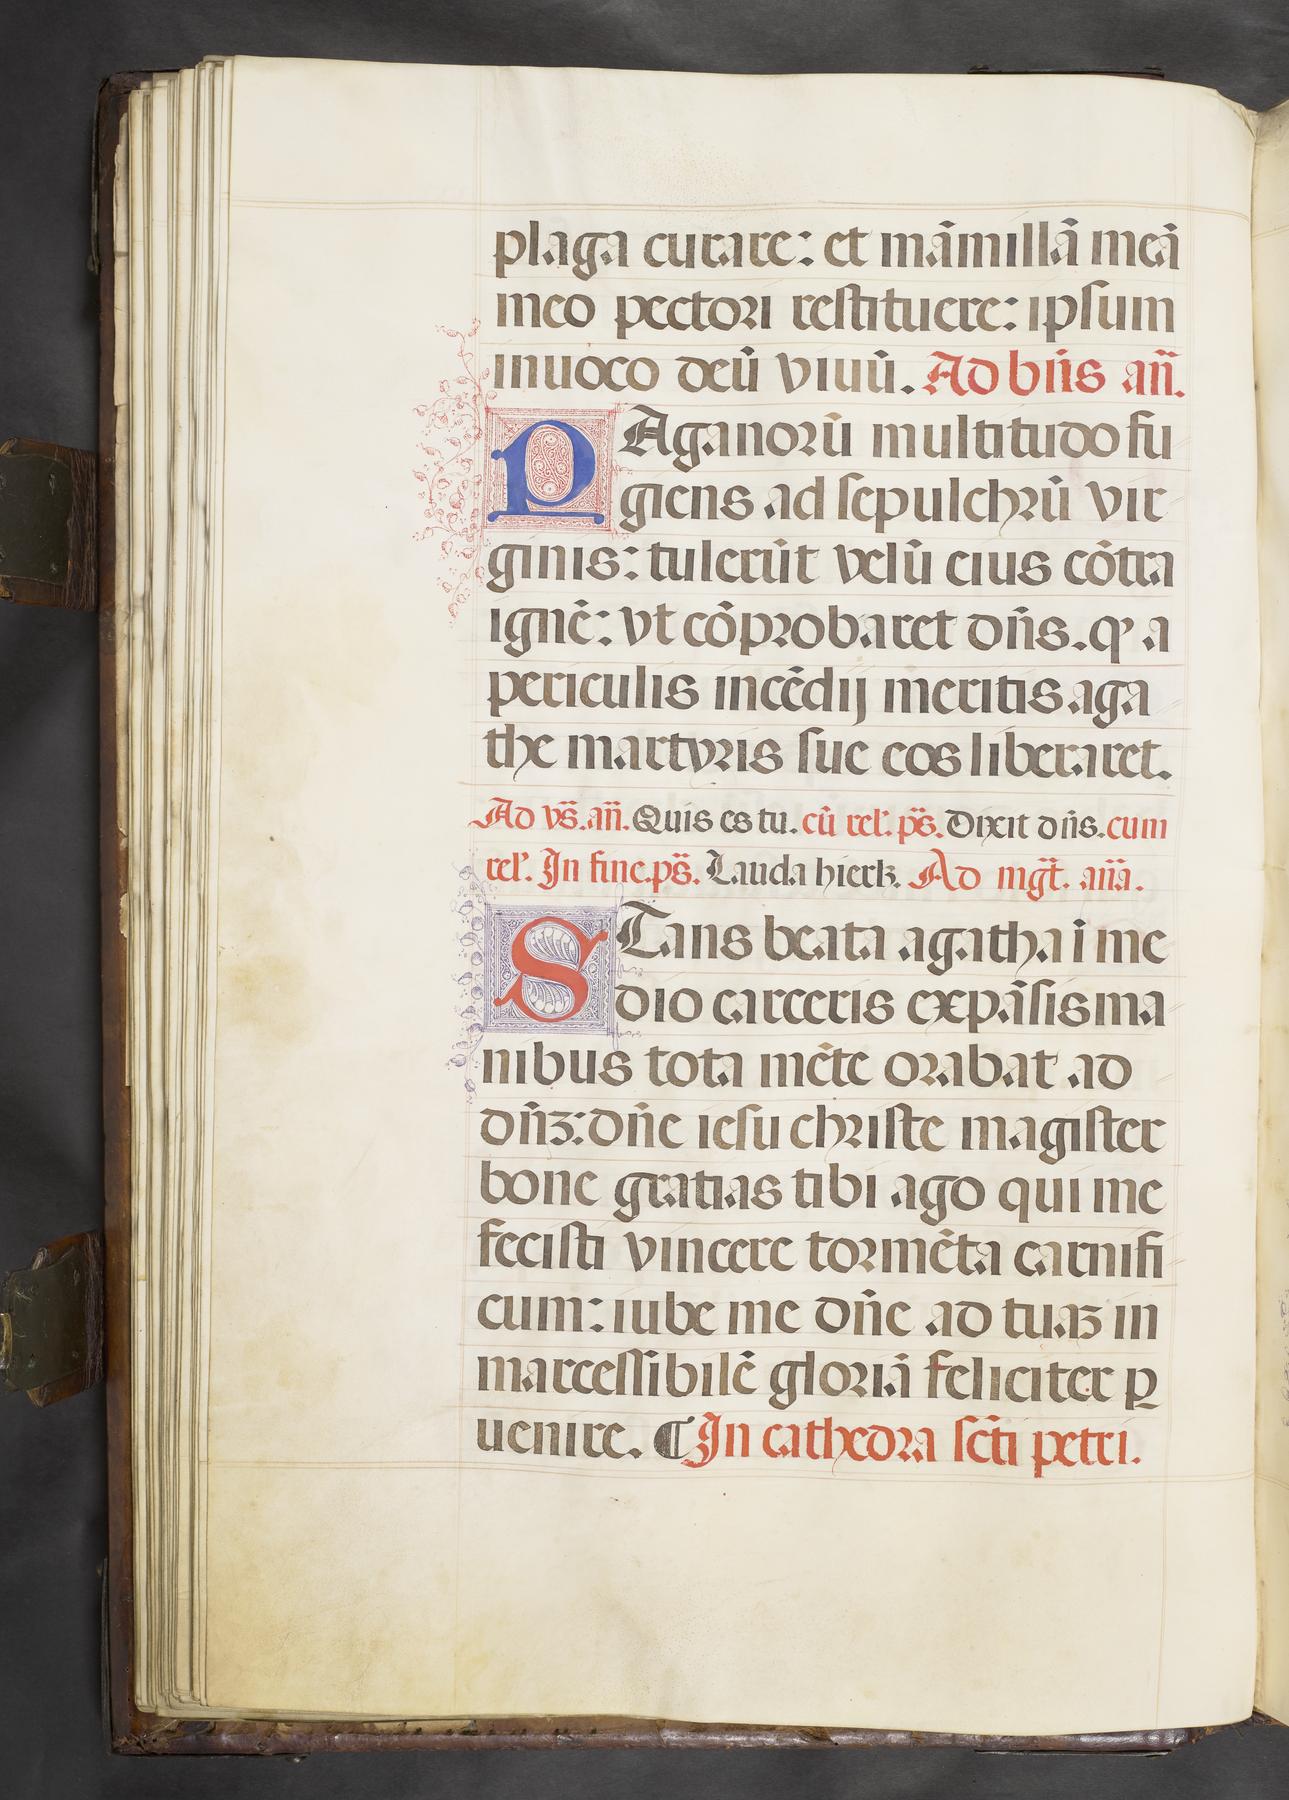 plaga curare: et mãmillã meã
meo pectori restituere: ipsum
inuoco deũ viuũ. Ad bñs añ.
PAganorũ multitudo fu
giens ad sepulchrũ vir
ginis: tulerũt velũ eius cõtra
ignẽ: vt cõprobaret dñs. qꝰ a
periculis incẽdij meritis aga
the martyris sue eos liberaret.
Ad vs̃. añ. Quis es tu. cũ relꝰ. ps̃. Dixit dñs. cum
relꝰ. In fine. ps̃. Lauda hierlz. Ad mg̃t. añã.
STans beata agatha ĩ me
dio carceris expãsis ma
nibus tota mẽte orabat ad
dñꝫ: dñe iesu christe magister
bone gratias tibi ago qui me
fecisti vincere tormẽta carnifi
cum: iube me dñe ad tuaꝫ in
marcessibilẽ gloriã feliciter ꝑ
uenire. ¶ In cathedra sc̃ti petri.